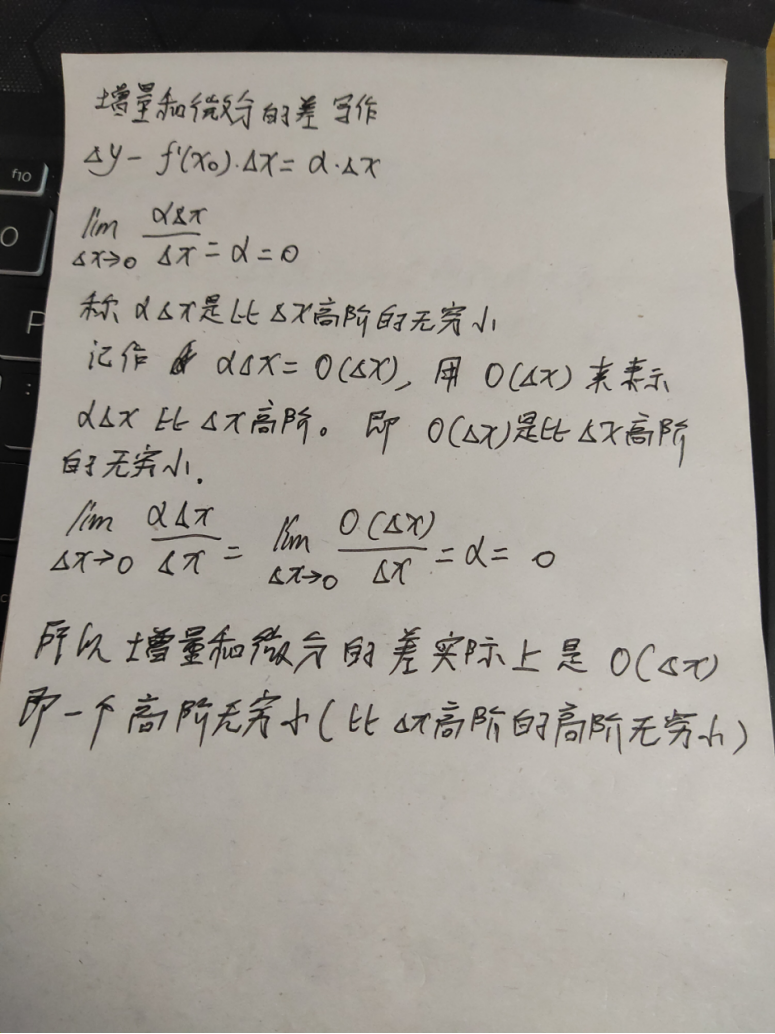 f10
P
增量和微分的差写作
Δy - f'(x₀)·Δx = α·Δx
lim Δx→0 αΔx/Δx = α = 0
称 αΔx是比Δx高阶的无穷小
记作 αΔx = O(Δx), 用 O(Δx) 来表示
αΔx 比 Δx高阶。即 O(Δx)是比Δx高阶
的无穷小.
lim Δx→0 αΔx/Δx = lim Δx→0 O(Δx)/Δx = α = 0
所以增量和微分的差实际上是 O(Δx)
即一个高阶无穷小(比Δx高阶的高阶无穷小)